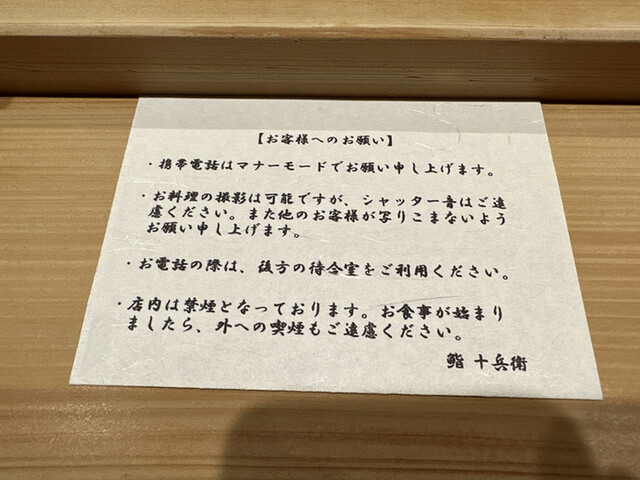 【お客様へのお願い】
・携帯電話はマナーモードでお願い申し上げます。
・お料理の撮影は可能ですが、シャッター音はご遠
慮ください。また他のお客様が写りこまないよう
お願い申し上げます。
・お電話の際は、後方の待合室をご利用ください。
・店内は禁煙となっております。お食事が始まり
ましたら、外への喫煙もご遠慮ください。
鮨 十兵衛